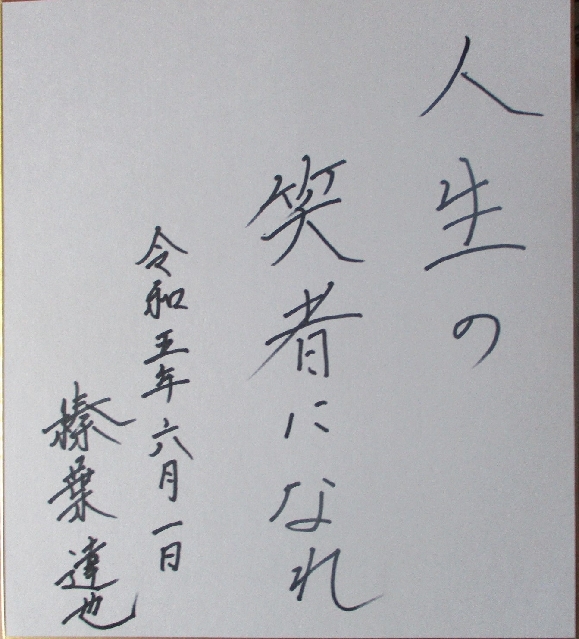 人生の
笑者になれ
令和五年六月一日
榛葉達也